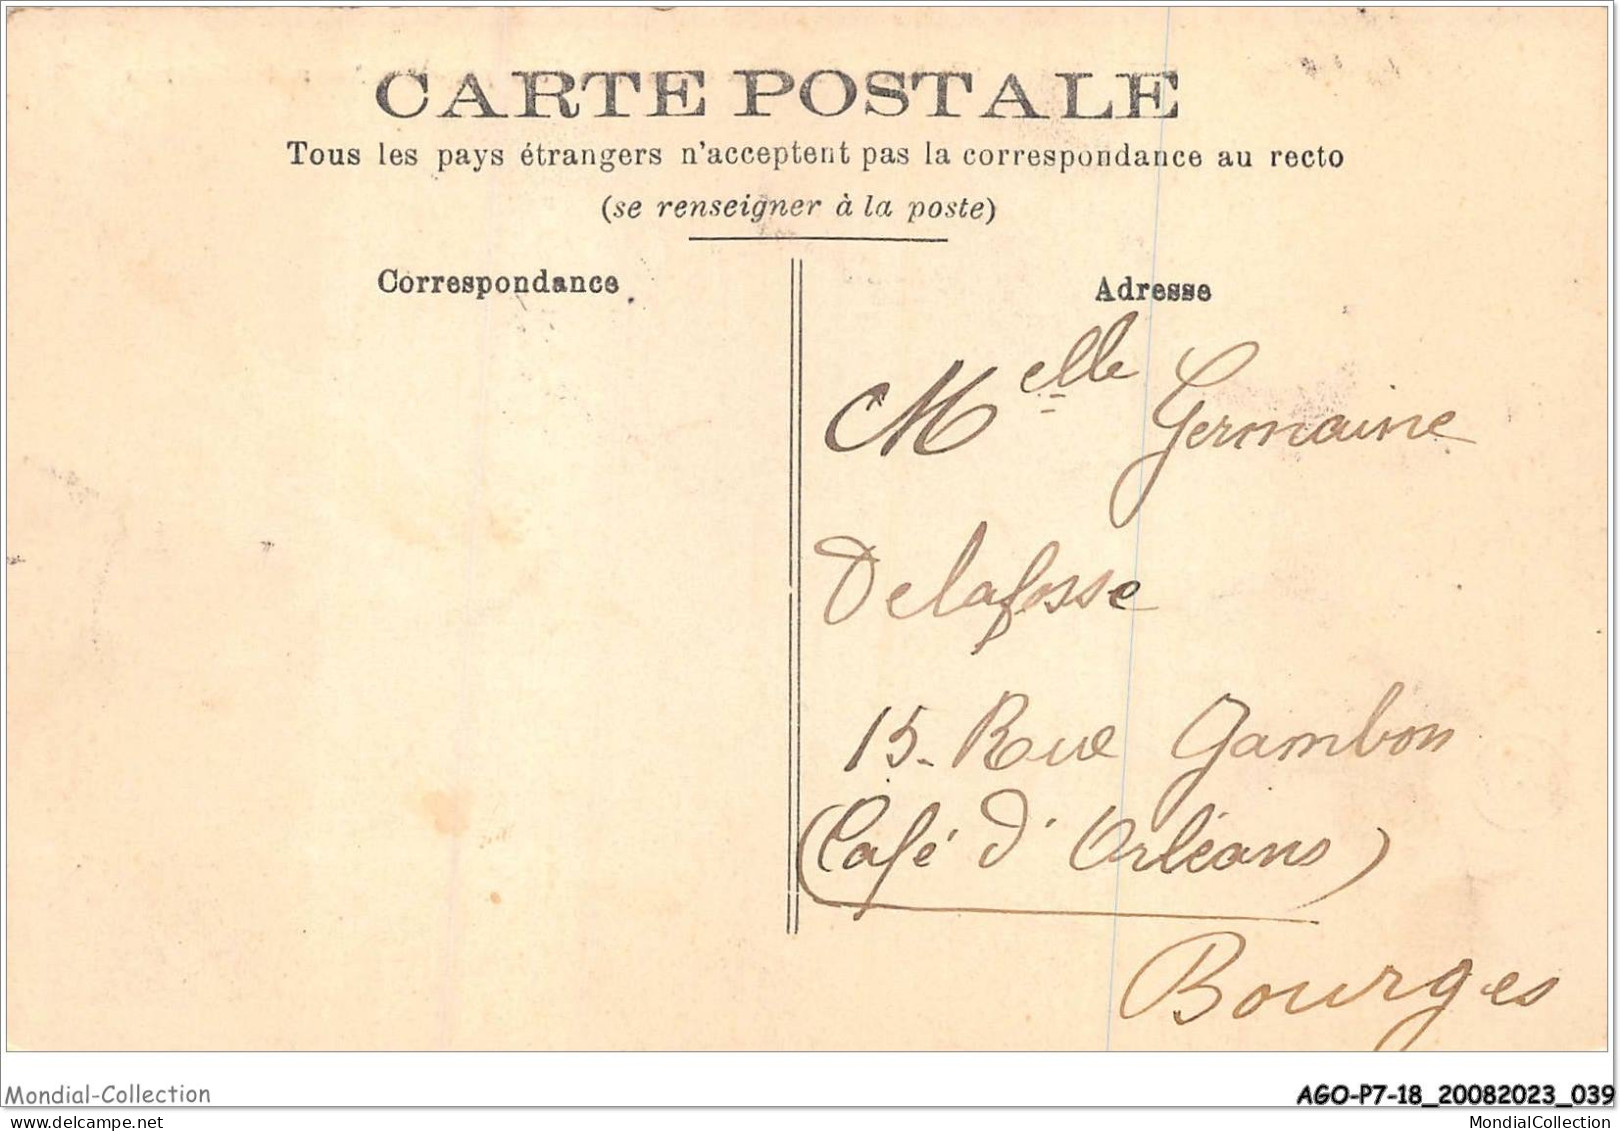 CARTE POSTALE
Tous les pays étrangers n'acceptent pas la correspondance au recto
(se renseigner à la poste)
Correspondance
Adresse
Melle Germaine
Delafosse
15. Rue Gambon
(Café d'Orléans)
Bourges
Mondial-Collection
AGO-P7-18_20082023_039
MondialCollection